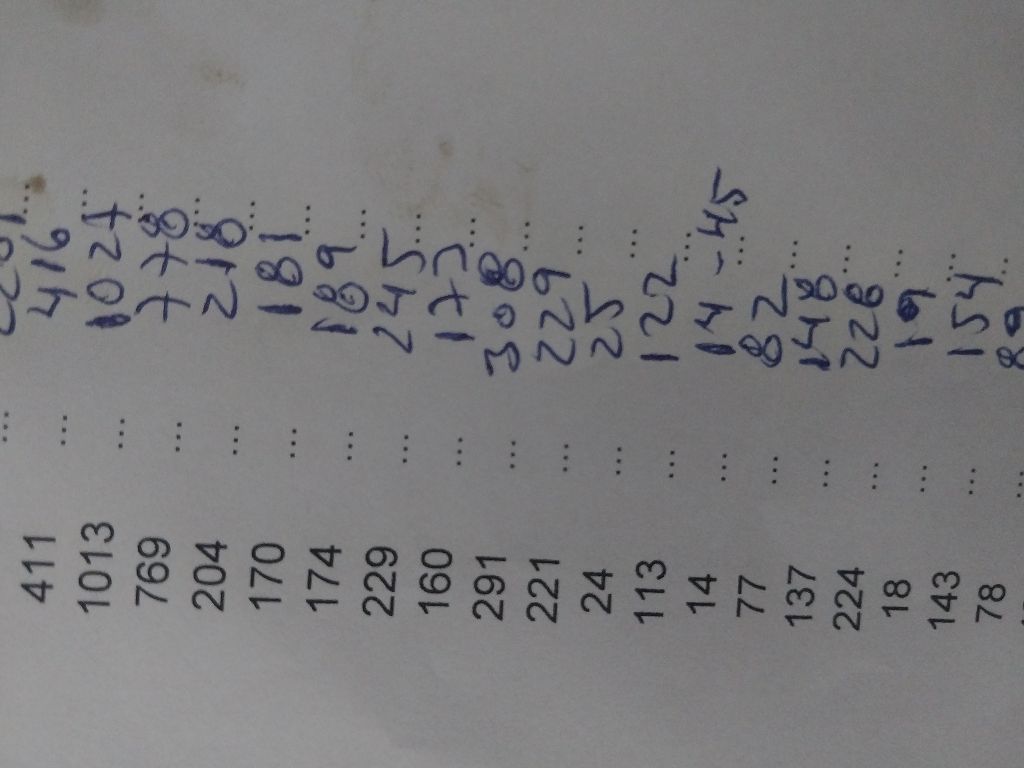 411 ... 416 ...
1013 ... 1027 ...
769 ... 778 ...
204 ... 218 ...
170 ... 181 ...
174 ... 189 ...
229 ... 245 ...
160 ... 173 ...
291 ... 308 ...
221 ... 229 ...
24 ... 25 ...
113 ... 122 ...
14 ... 14 - 45 ...
77 ... 82 ...
137 ... 148 ...
224 ... 228 ...
18 ... 19 ...
143 ... 154 ...
78 ... 89